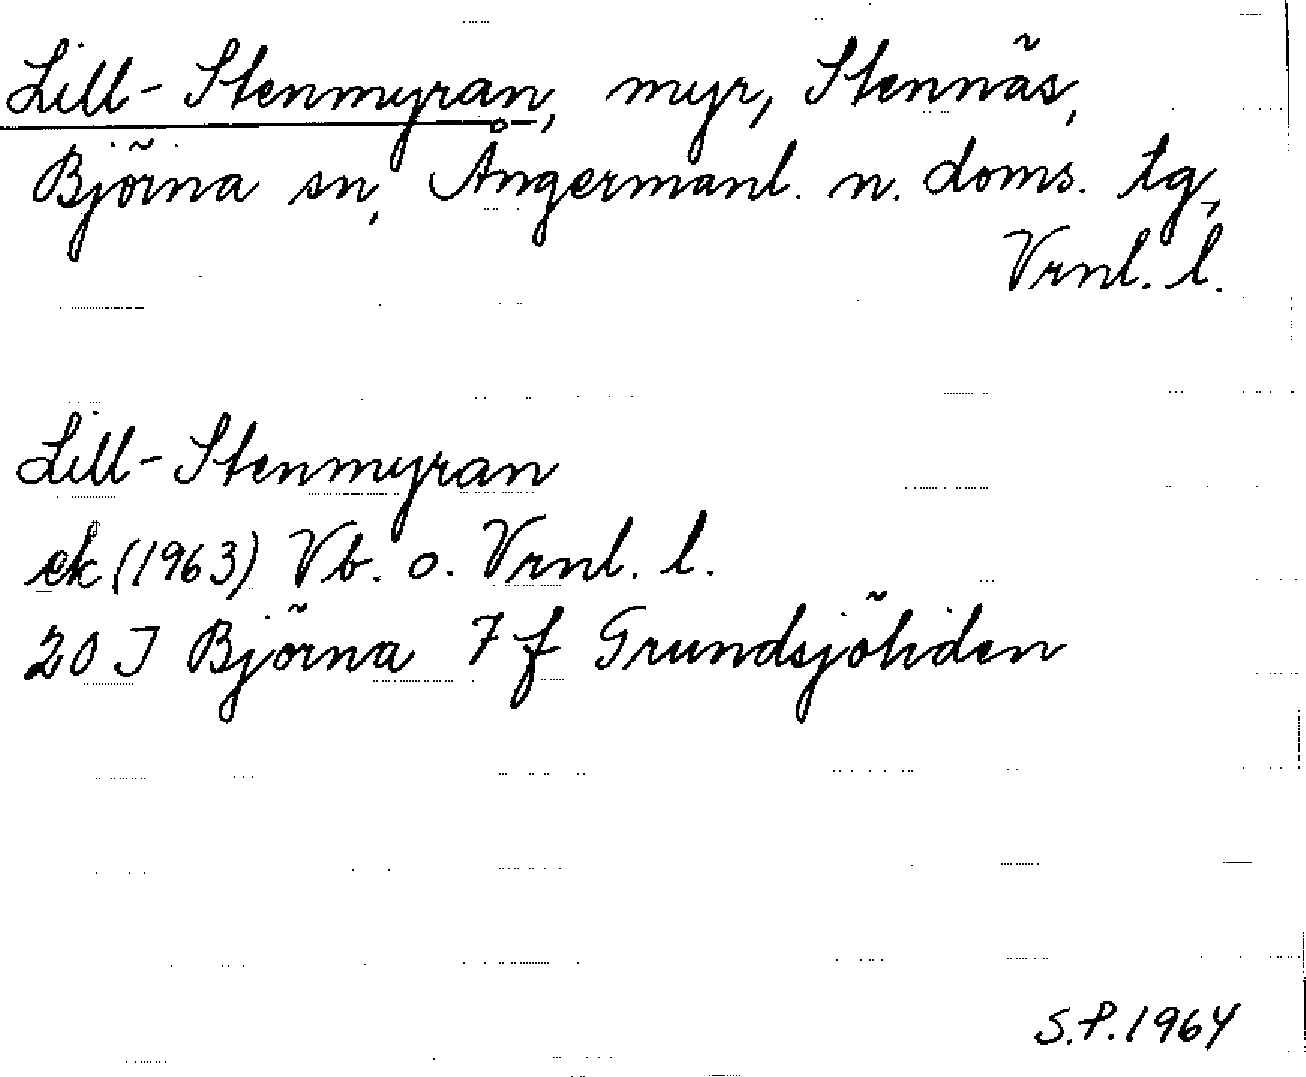 Lill-Stenmyran, myr, Stennäs,
Björna sn, Ångermanl. n. doms. tg,
Vrnl. l.
Lill-Stenmyran
ek (1963) Vb. o. Vrnl. l.
20 J Björna 7 f Grundsjöliden
S.P. 1964